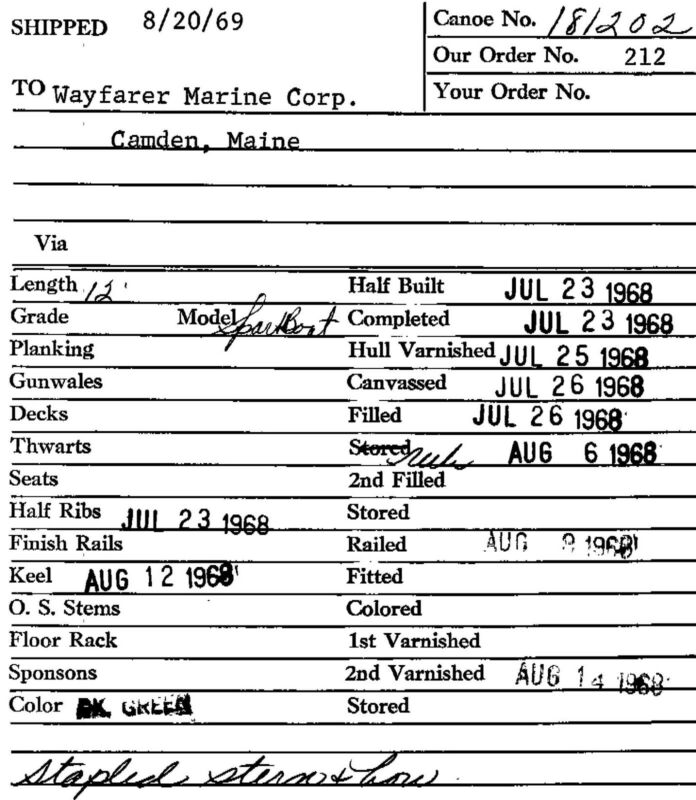 SHIPPED 8/20/69 Canoe No. 181202
Our Order No. 212
TO Wayfarer Marine Corp. Your Order No.
Camden, Maine
Via
Length 12' Half Built JUL 23 1968
Grade Model Completed JUL 23 1968
Planking Hull Varnished JUL 25 1968
Gunwales Canvassed JUL 26 1968
Decks Filled JUL 26 1968
Thwarts Stored AUG 6 1968
Seats 2nd Filled
Half Ribs JUL 23 1968 Stored
Finish Rails Railed AUG 9 1968
Keel AUG 12 1968 Fitted
O. S. Stems Colored
Floor Rack 1st Varnished
Sponsons 2nd Varnished AUG 14 1968
Color DK. GREEN Stored
Stapled stern & bow